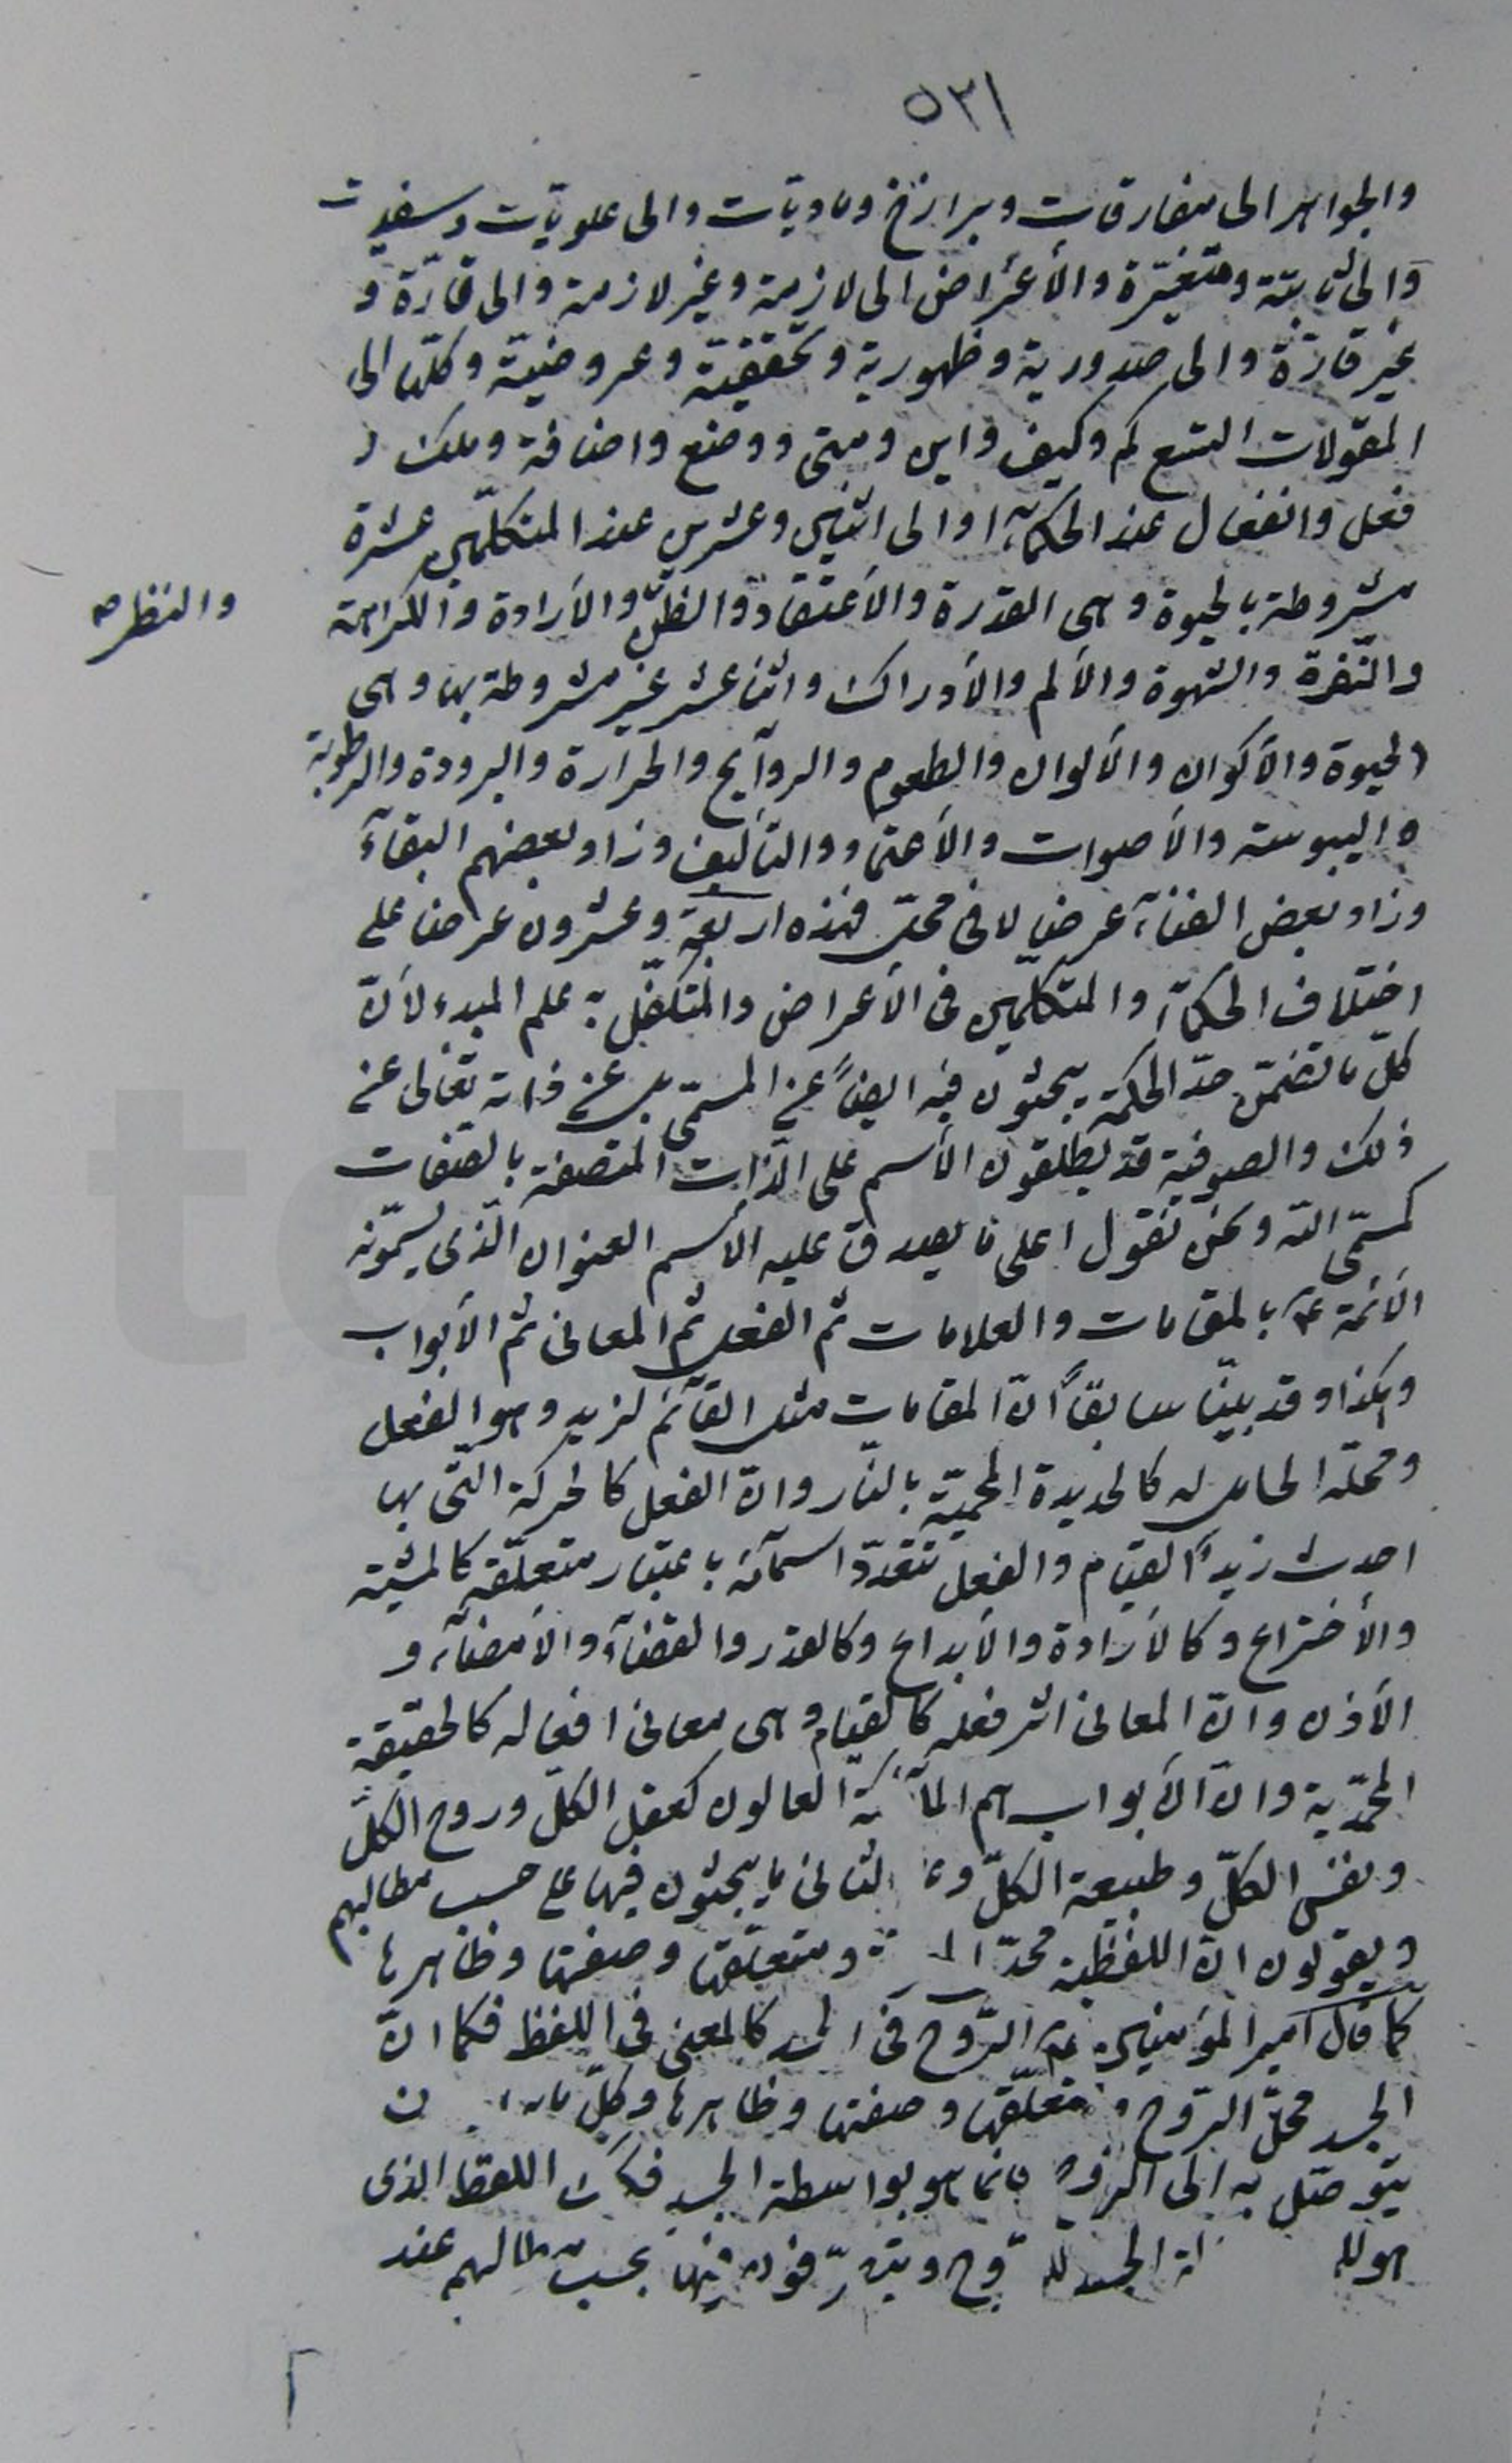 ٥٣١
والجواهر الى مفارقات وبرازخ وماديّات والى علويّات وسفليّات
والى ثابتة ومتغيّرة والأعراض الى لازمة وغير لازمة والى قارّة و
غير قارّة والى صدورية وظهورية وتحققيّة وعروضيّة وكلّها الى
المقولات التسع كم وكيف واين ومتى ووضع واضافة وملك و
فعل وانفعال عند الحكمآء او الى اثنين وعشرين عند المتكلّمين عشرة
مشروطة بالحيوة وهى القدرة والأعتقاد والظنّ والأرادة والكراهة
والنظر صح
والنّفرة والشهوة والألم والأدراك واثنا عشر غير مشروطة بها وهى
الحيوة والأكوان والألوان والطعوم والروآيح والحرارة والبرودة والرطوبة
واليبوسة والأصوات والأعتماد والتأليف وزاد بعضهم البقآء
وزاد بعض الفنآء عرض لا فى محلّ فهذه اربعة وعشرون عرضا على
اختلاف الحكمآء والمتكلّمين فى الأعراض والمتكفّل به علم المبدء لأنّ
كلّ ما تضمّن حدّ الحكمة يبحثون فيه ايضاً عن المسمّى بل عن ذاته تعالى عن
ذلك والصوفية قد يطلقون الأسم على الذّات المتصفة بالصفات
كمسمّى الله ونحن نقول اعلى ما يصدق عليه الأسم العنوان الّذى يسمّونه
الأئمة ع بالمقامات والعلامات ثم الفعل ثم المعانى ثم الأبواب
وهكذا وقد بيّنا سابقاً انّ المقامات مثل القآئم لزيد وهو الفعل
ومحلّه الحامل له كالحديدة المحميّة بالنّار وانّ الفعل كالحركة الّتى بها
احدث زيدٌ القيام والفعل تتعدّد اسمآئه باعتبار متعلّقه كالمشيّة
والأختراع وكالأرادة والأبداع وكالقدر والقضآء والأمضآء و
الأذن وانّ المعانى اثر فعله كالقيام وهى معانى افعاله كالحقيقة
المحمّدية وانّ الأبواب هم الملآئكة العالون كعقل الكلّ وروح الكلّ
ونفس الكلّ وطبيعة الكلّ الثانى ما يبحثون فيها على حسب مطالبهم
ويقولون انّ اللفظية محلّ ومتعلّقها وصفتها وظاهرها
كما قال امير المؤمنين ع الرّوح فى الجسد كالمعنى فى اللفظ فكما انّ
الجسد محلّ الرّوح ومتعلّقها وصفتها وظاهرها وكلّ ما
يتوصّل به الى الرّوح فانما هو بواسطة الجسد فكذلك اللفظ الذى
هو الجسد للرّوح ويتصرّفون فيها بحسب مطالبهم عند